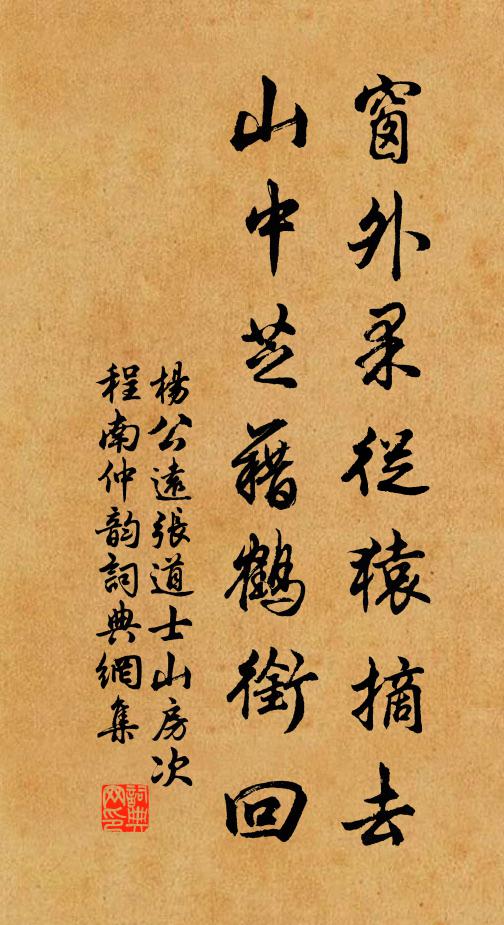 窗外果從猿摘去
山中芝藉鶴銜回
楊公遠張道士山房次
程南仲韵詞典網集